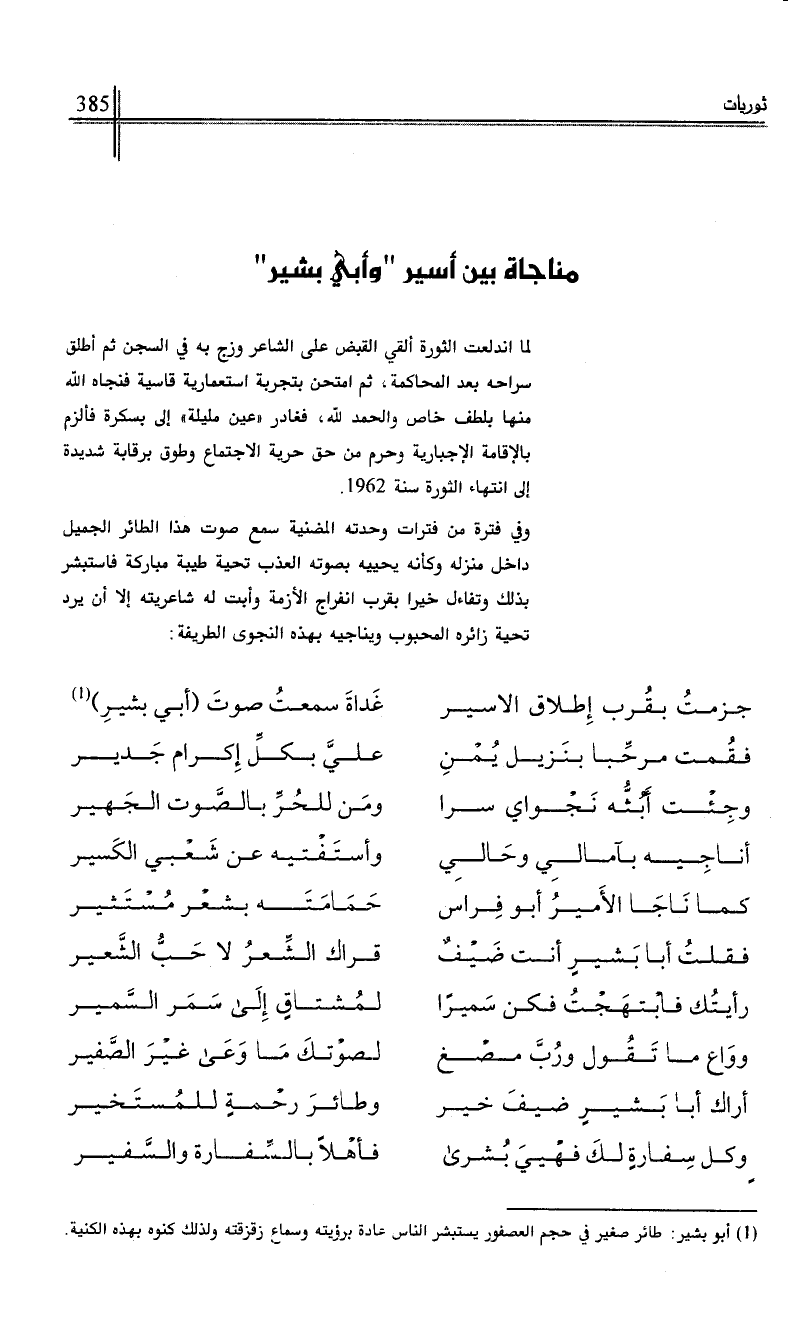 ثوريات 385
مناجاة بين أسير "وأبي بشير"
لما اندلعت الثورة ألقي القبض على الشاعر وزج به في السجن ثم أطلق
سراحه بعد المحاكمة، ثم امتحن بتجربة استعمارية قاسية فنجاه الله
منها بلطف خاص والحمد لله، فغادر «عين مليلة» إلى بسكرة فألزم
بالإقامة الإجبارية وحرم من حق حرية الاجتماع وطوق برقابة شديدة
إلى انتهاء الثورة سنة 1962.
وفي فترة من فترات وحدته المضنية سمع صوت هذا الطائر الجميل
داخل منزله وكأنه يحييه بصوته العذب تحية طيبة مباركة فاستبشر
بذلك وتفاءل خيرا بقرب انفراج الأزمة وأبت له شاعريته إلا أن يرد
تحية زائره المحبوب ويناجيه بهذه النجوى الطريفة:
جزمتُ بقُرب إطلاق الاسير غَداةَ سمعتُ صوتَ (أبي بشيرِ)(1)
فقُمت مرحِّبا بنَزيل يُمْنِ عليَّ بكلِّ إكرام جَدير
وجِئْت أبُثُّه نَجْواي سرا ومَن للحُرِّ بالصَّوت الجَهير
أناجيه بآمالي وحَالي وأستَفْتيه عن شَعْبي الكَسير
كما نَاجَا الأميرُ أبو فِراس حَمَامَتَه بشعْر مُسْتَثير
فقلتُ أبا بَشيرٍ أنت ضَيْفٌ قراك الشِّعرُ لا حَبُّ الشَّعير
رأيتُك فابْتهَجْتُ فكن سَميرًا لمُشتاقٍ إلَىٰ سَمَر السَّمير
وواع ما تَقُول ورُبَّ مصْغ لصوْتكَ مَا وَعَىٰ غيْرَ الصَّفير
أراك أبا بَشيرٍ ضيفَ خير وطائرَ رحْمةٍ للمُستَخير
وكل سِفارةٍ لكَ فهْيَ بُشرىٰ فأهْلاً بالسِّفارة والسَّفير
(1) أبو بشير: طائر صغير في حجم العصفور يستبشر الناس عادة برؤيته وسماع زقزقته ولذلك كنوه بهذه الكنية.